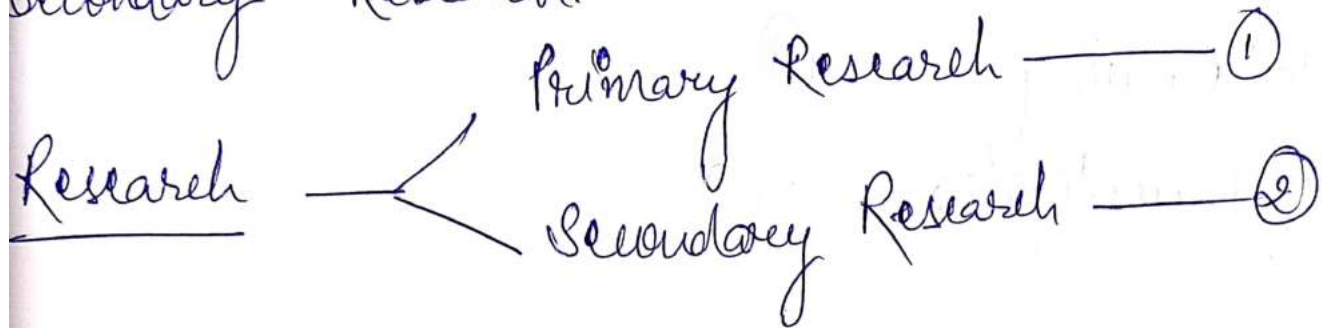 Secondary Research
Primary Research ①
Research
Secondary Research ②